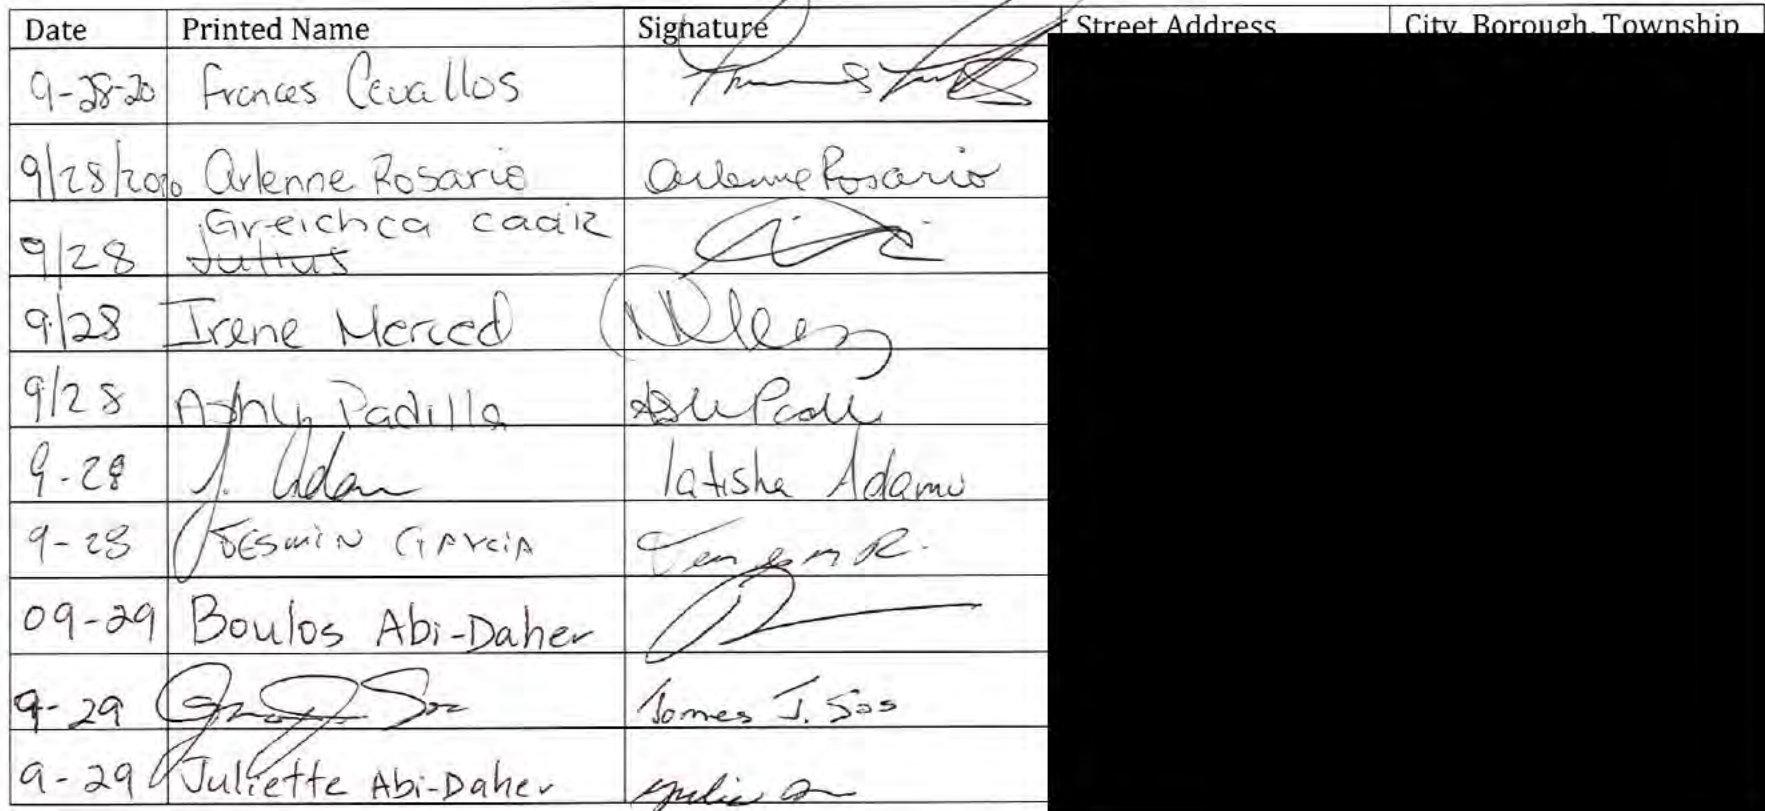 Date Printed Name Signature Street Address City, Borough, Township
9-28-20 Frances Cevallos
9/28/2020 Arlenne Rosario Arlenne Rosario
Greichca cadiz
9/28 Julius
9/28 Irene Merced
9/28 Ashly Padilla
9-28 J. Adam latisha Adams
9-28 JESMIN GARCIA
09-29 Boulos Abi-Daher
9-29 James J. Sos
9-29 Juliette Abi-Daher